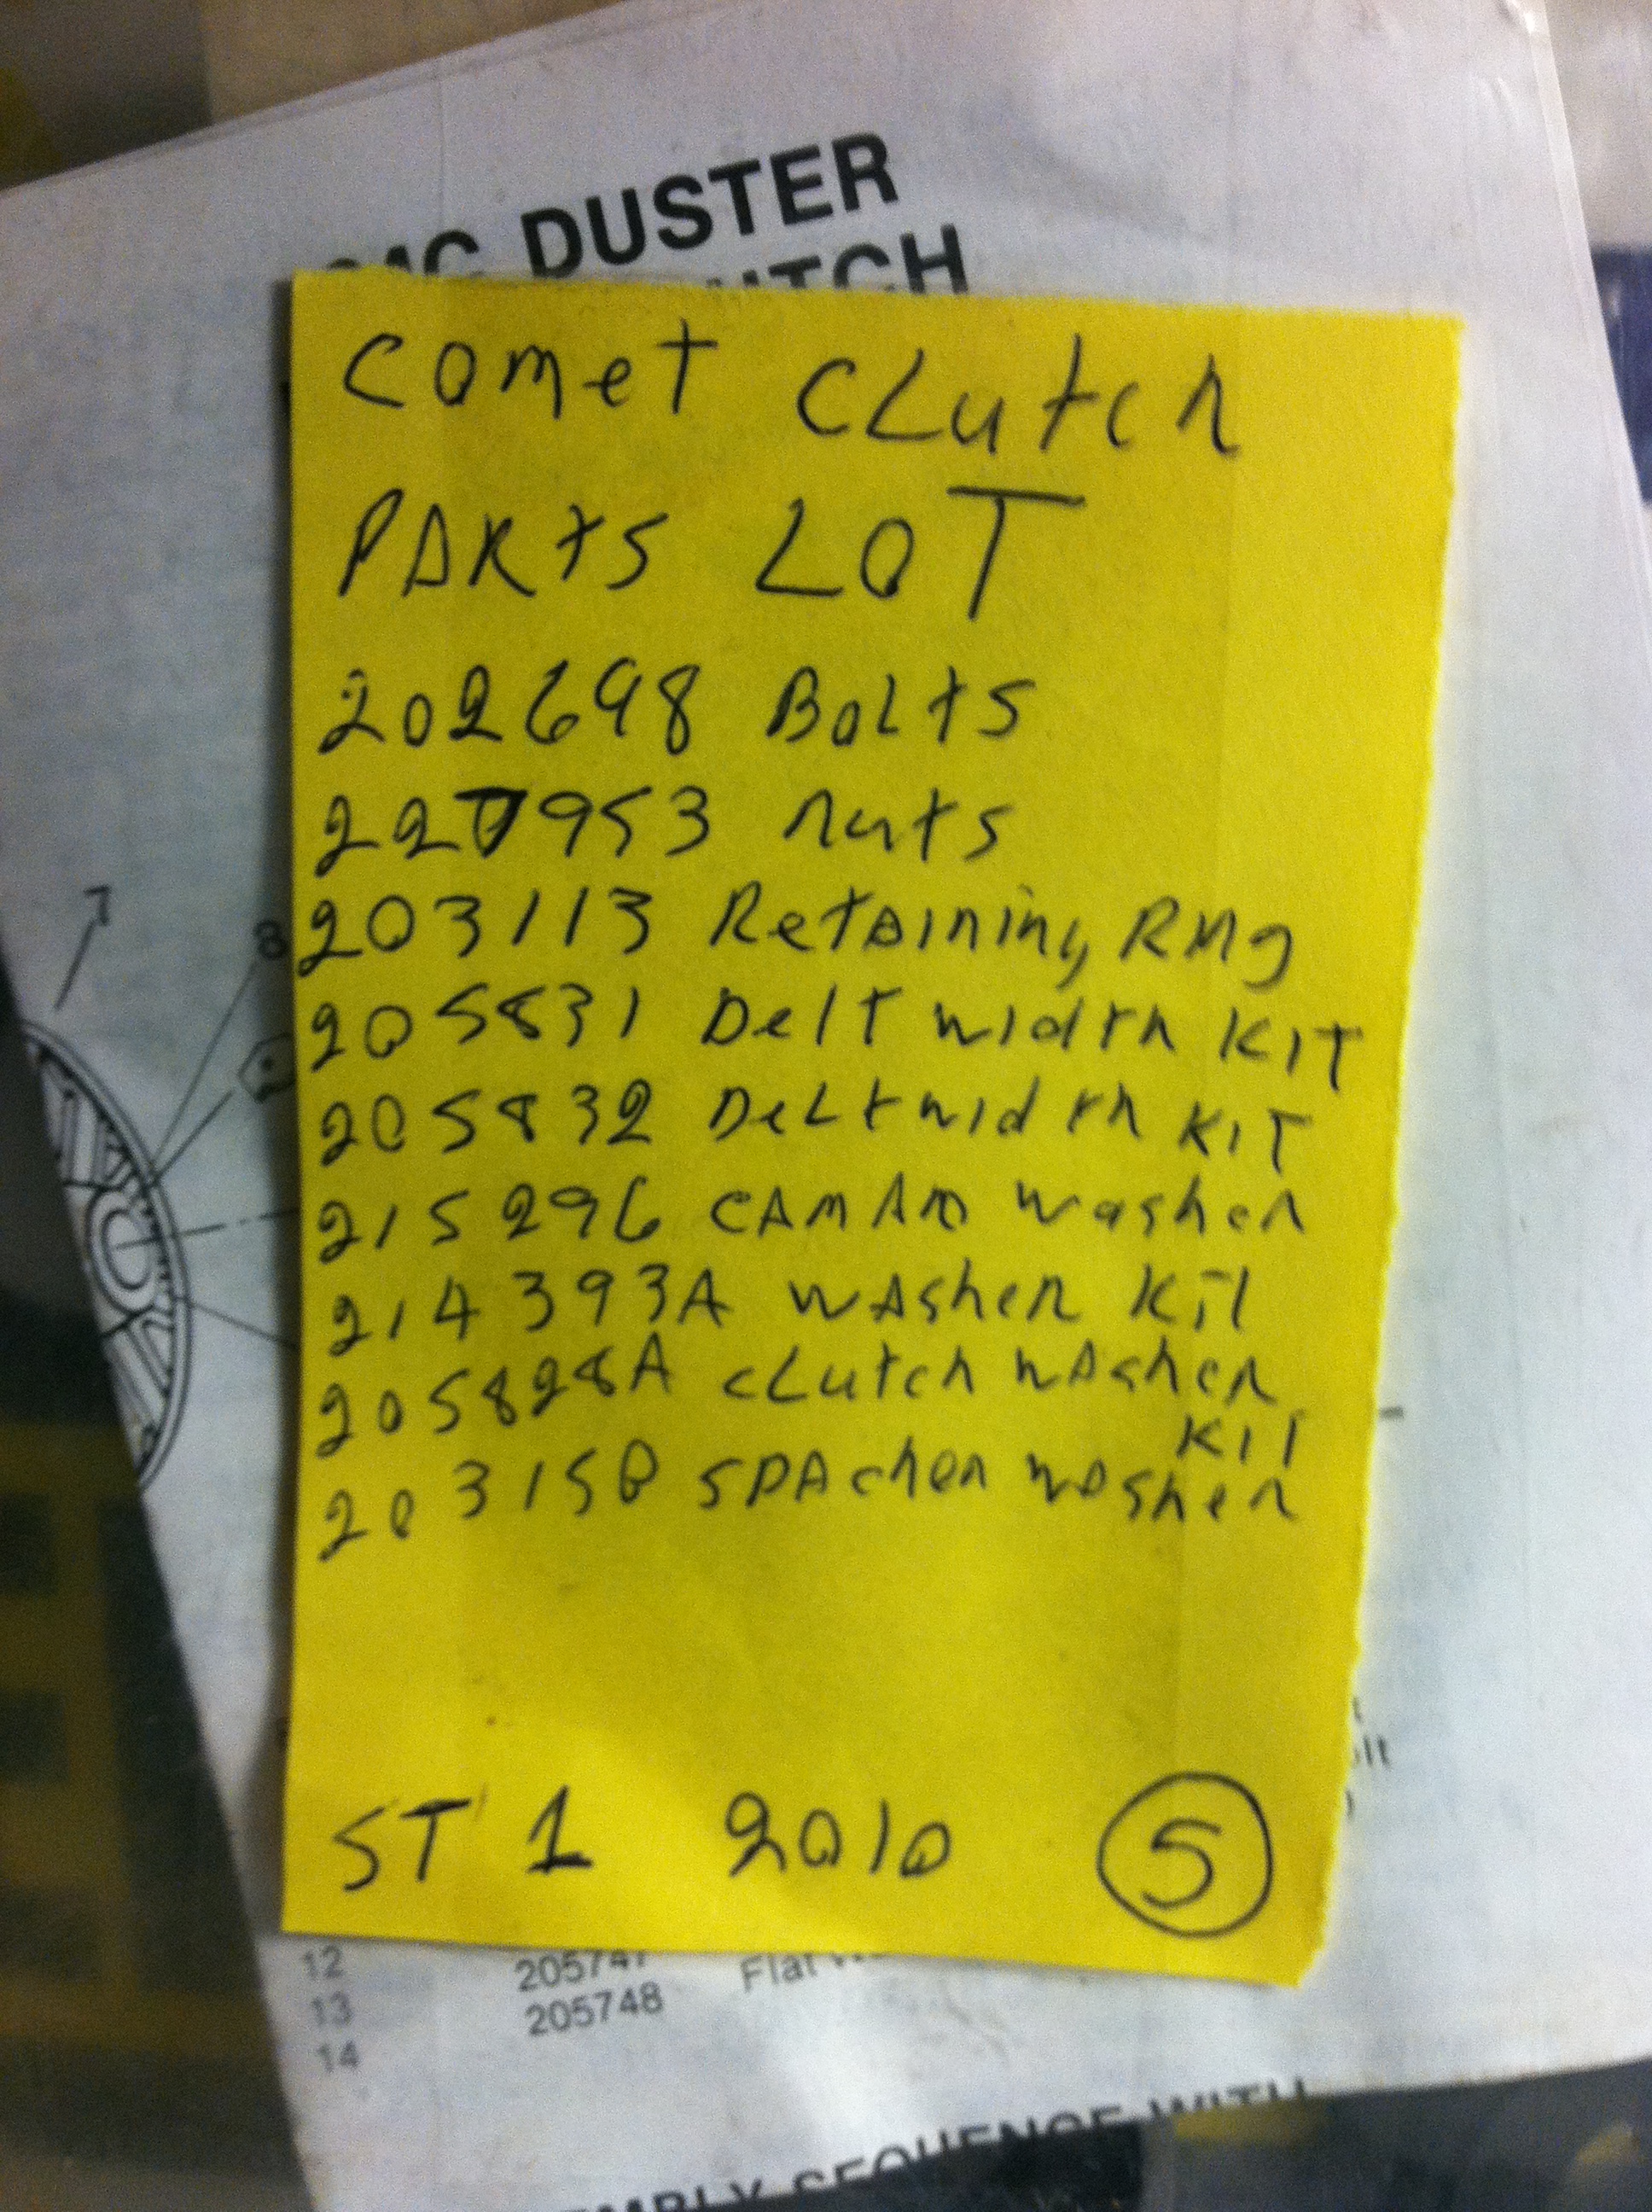 DUSTER
Comet CLutch
PARts LOT
202698 BoLts
227953 nuts
203113 Retaining Ring
205831 Delt width KIT
205832 DeLt width KIT
215296 CAM AND washer
214393A WAsher Kit
205828A CLutch WAsher
KIT
203150 SPAcher WAsher
7
8
ST 1 2010 5
12 205747 Flat
13 205748
14
SEQUENCE WITH